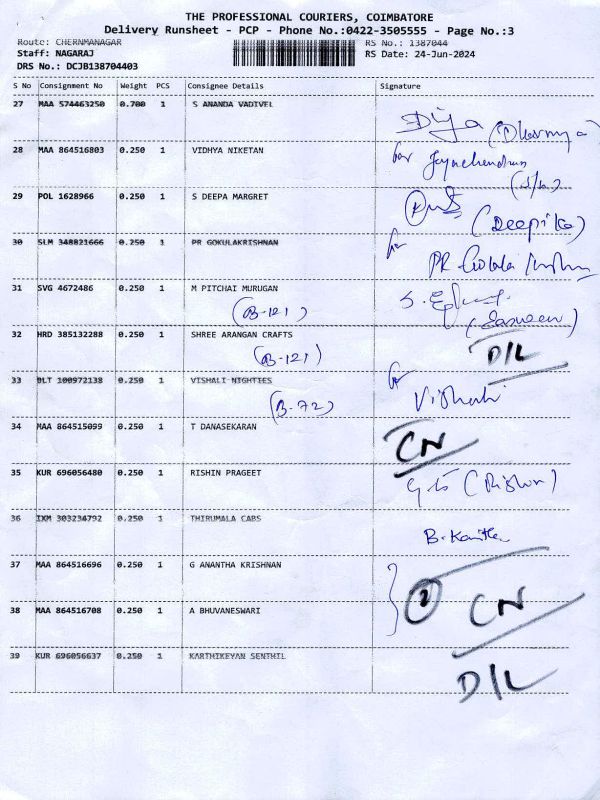 THE PROFESSIONAL COURIERS, COIMBATORE
Delivery Runsheet - PCP - Phone No.:0422-3505555 - Page No.:3
Route: CHERNMANAGAR RS No.: 1387044
Staff: NAGARAJ RS Date: 24-Jun-2024
DRS No.: DCJB138704403
S No Consignment No Weight PCS Consignee Details Signature
27 MAA 574463250 0.700 1 S ANANDA VADIVEL
Divya (Dharmya)
28 MAA 864516803 0.250 1 VIDHYA NIKETAN
for
29 POL 1628966 0.250 1 S DEEPA MARGRET
(Deepika)
30 SLM 348821666 0.250 1 PR GOKULAKRISHNAN
for
PR
31 SVG 4672486 0.250 1 M PITCHAI MURUGAN
(B-121)
32 HRD 385132288 0.250 1 SHREE ARANGAN CRAFTS D/L
(B-121)
33 BLT 100972138 0.250 1 VISHALI NIGHTIES
(B-72)
34 MAA 864515099 0.250 1 T DANASEKARAN CN
35 KUR 696056480 0.250 1 RISHIN PRAGEET
36 IXM 303234792 0.250 1 THIRUMALA CABS
B. Kavitha
37 MAA 864516696 0.250 1 G ANANTHA KRISHNAN
2 CN
38 MAA 864516708 0.250 1 A BHUVANESWARI
39 KUR 696056637 0.250 1 KARTHIKEYAN SENTHIL
D/L